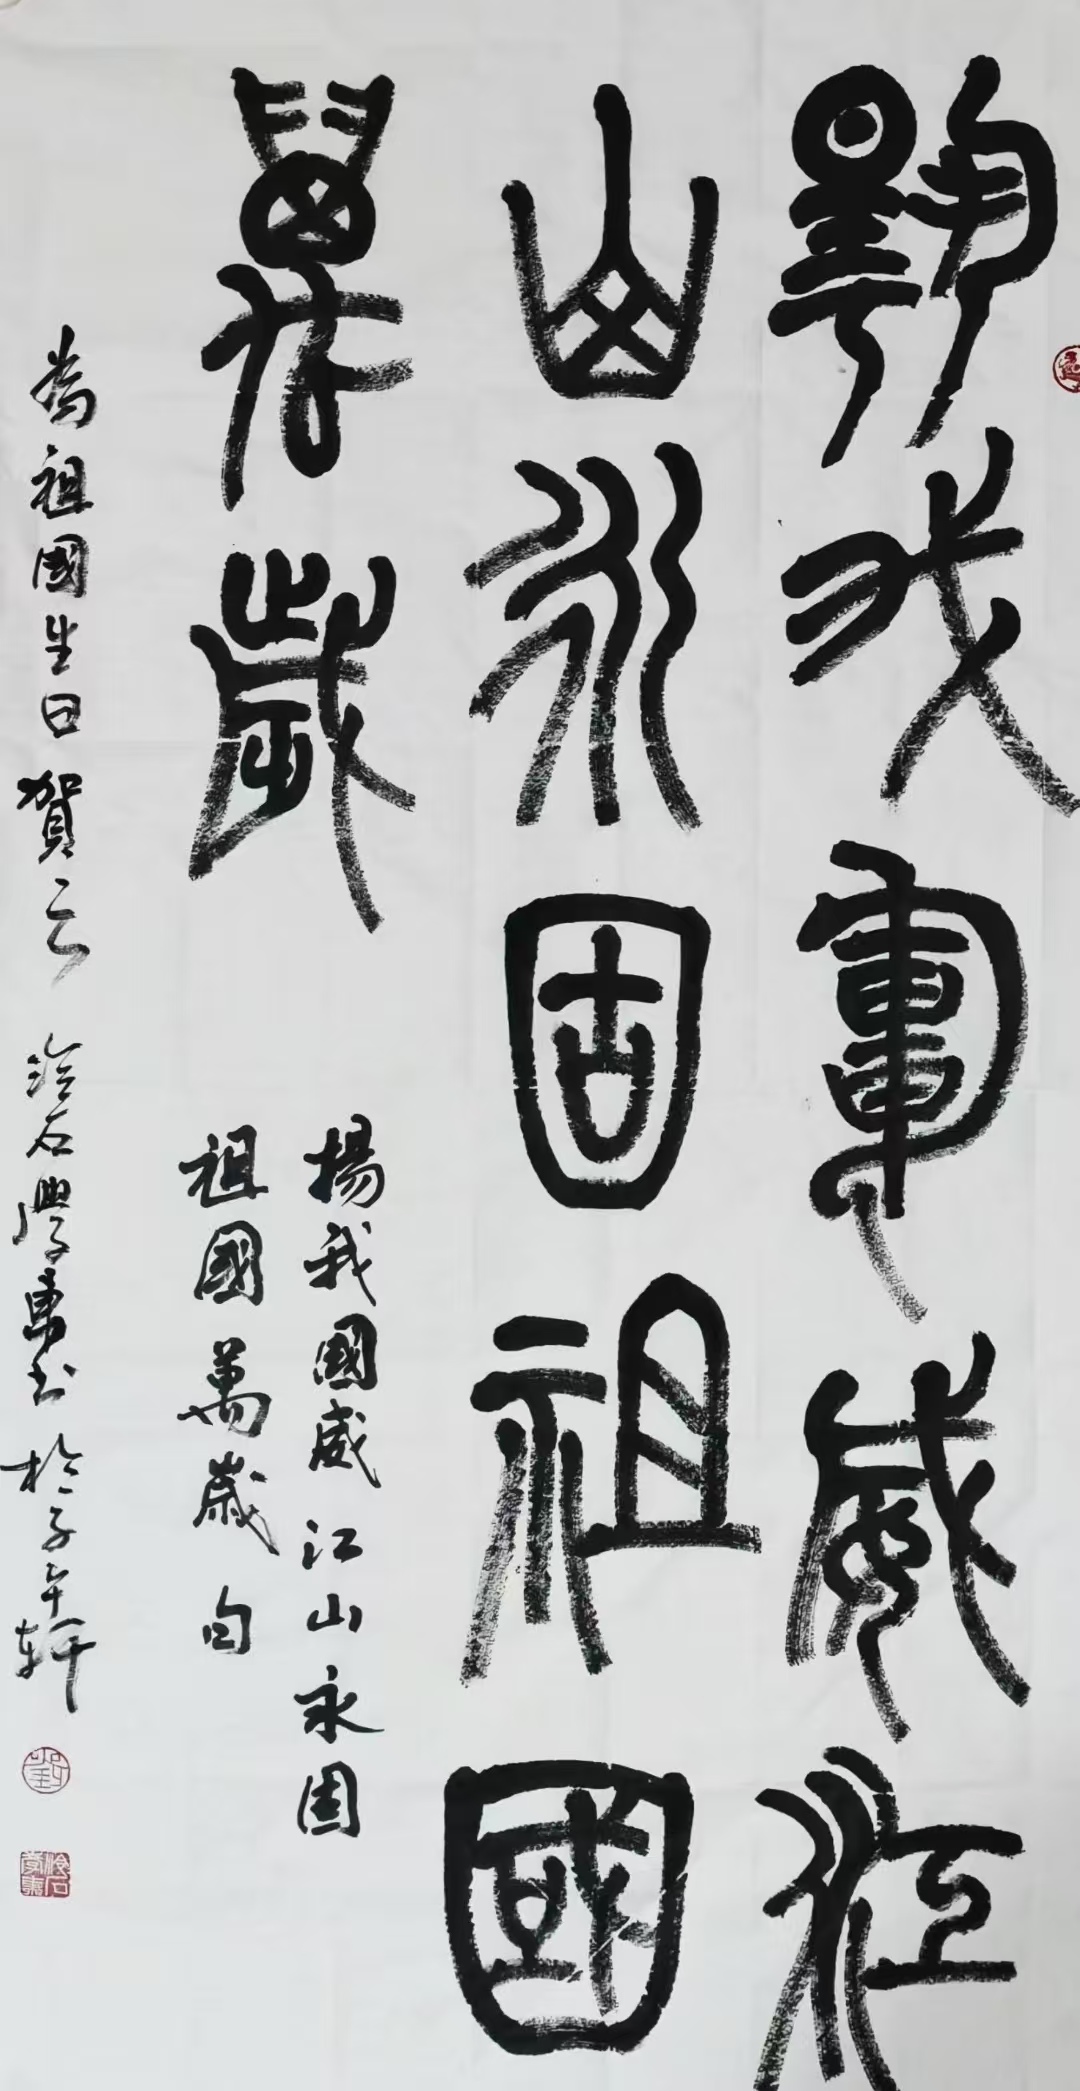 揚我軍威江
山永固祖國
萬歲
揚我國威江山永固
祖國萬歲 句
為祖國生日賀 石學書於子午軒